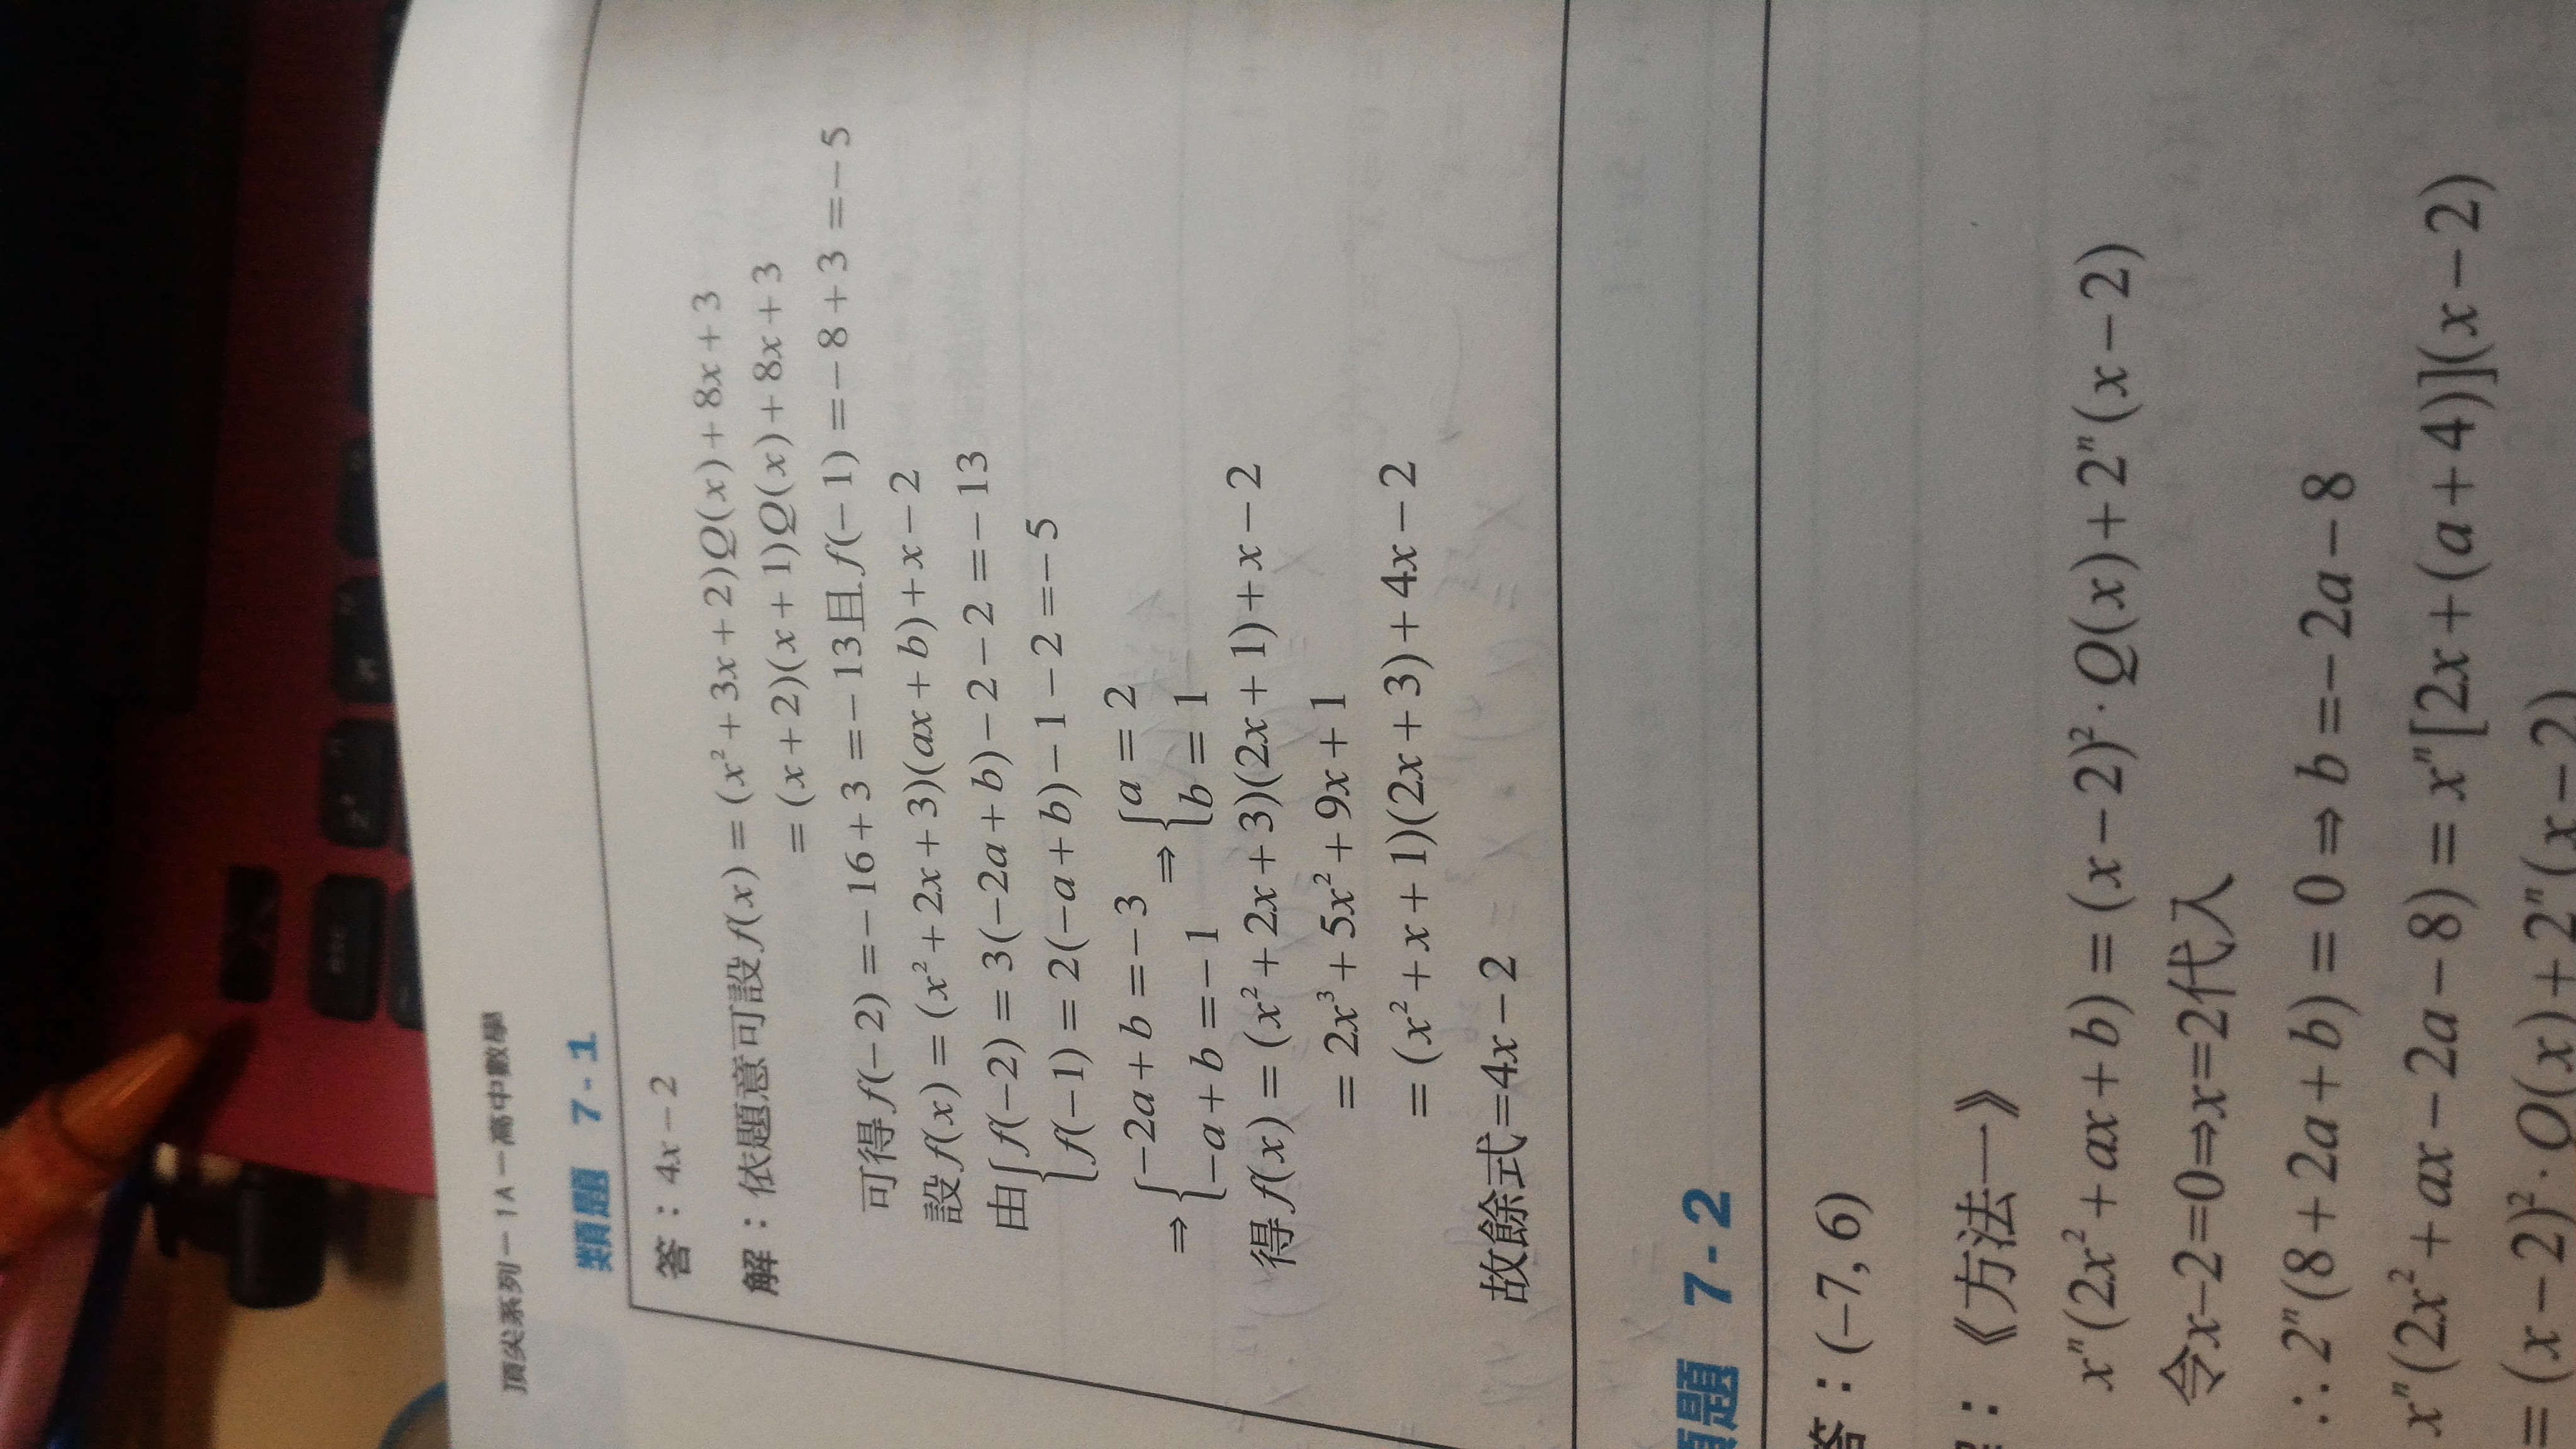 頂尖系列－1A－高中數學
類題 7-1
答：4x－2
解：依題意可設f(x)＝(x²＋3x＋2)Q(x)＋8x＋3
＝(x＋2)(x＋1)Q(x)＋8x＋3
可得f(－2)＝－16＋3＝－13且f(－1)＝－8＋3＝－5
設f(x)＝(x²＋2x＋3)(ax＋b)＋x－2
由{f(－2)＝3(－2a＋b)－2－2＝－13
f(－1)＝2(－a＋b)－1－2＝－5
⇒{－2a＋b＝－3 ⇒{a＝2
－a＋b＝－1 b＝1
得f(x)＝(x²＋2x＋3)(2x＋1)＋x－2
＝2x³＋5x²＋9x＋1
＝(x²＋x＋1)(2x＋3)＋4x－2
故餘式=4x－2
類題 7-2
答：(－7, 6)
解：《方法一》
xⁿ(2x²＋ax＋b)＝(x－2)²·Q(x)＋2ⁿ(x－2)
令x－2=0⇒x=2代入
∴2ⁿ(8＋2a＋b)＝0⇒b＝－2a－8
xⁿ(2x²＋ax－2a－8)＝xⁿ[2x＋(a＋4)](x－2)
＝(x－2)²·Q(x)＋2ⁿ(x－2)